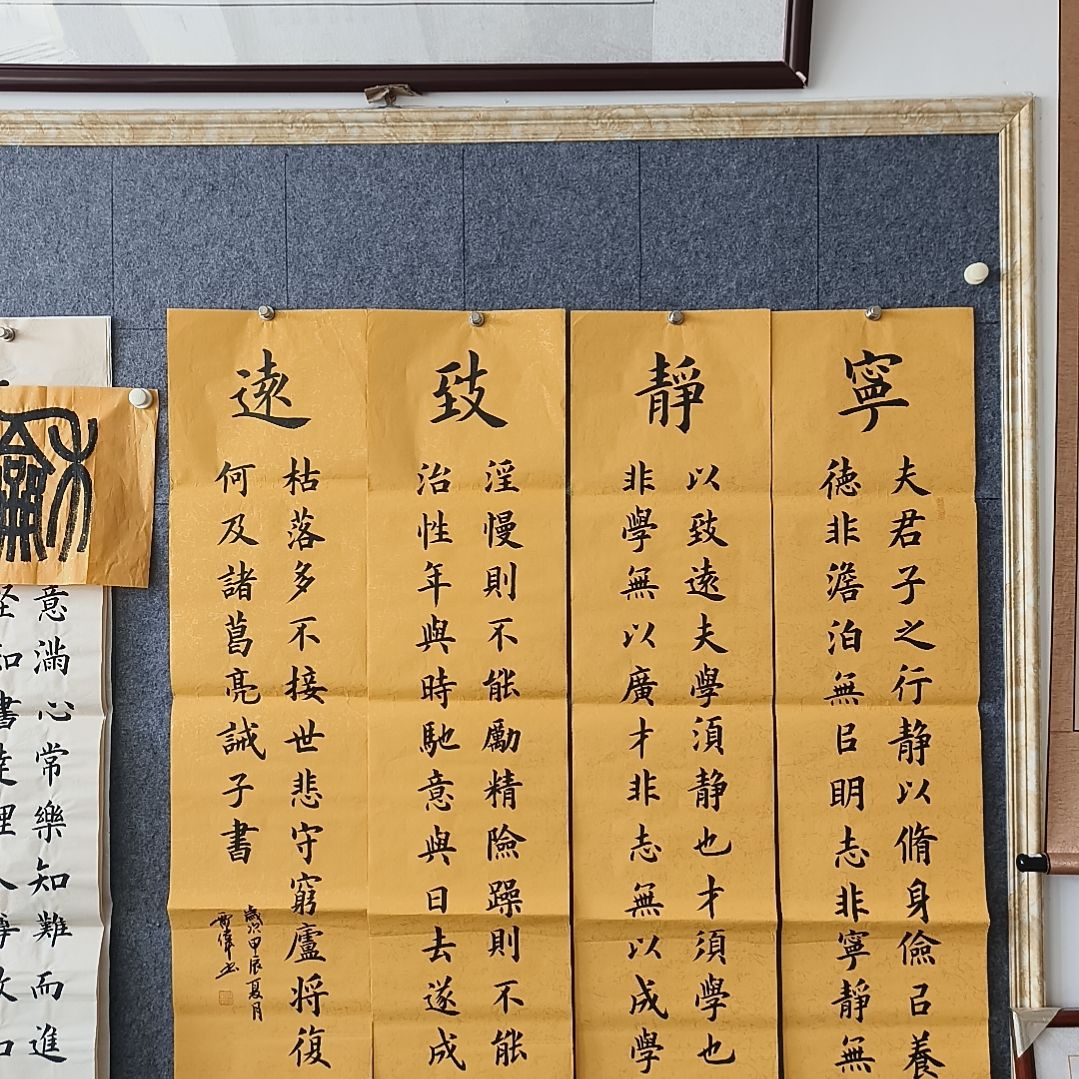 寧
夫君子之行静以脩身儉㠯養
德非澹泊無㠯明志非寧静無
靜
以致遠夫學須静也才須學也
非學無以廣才非志無以成學
致
淫慢則不能勵精險躁則不能
治性年與時馳意與日去遂成
遠
枯落多不接世悲守窮廬将復
何及諸葛亮誡子書
歲次甲辰夏月
意滿心常樂知難而進
和書達理